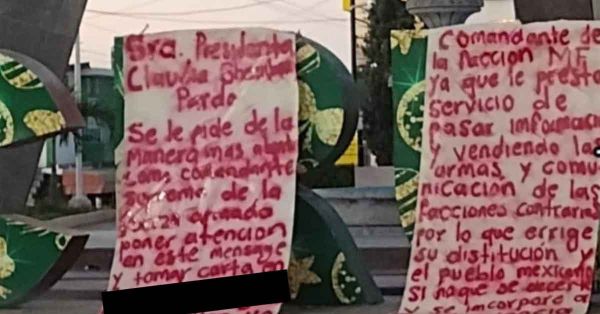 Sra. Presidenta
Claudia Sheinbaum
Pardo
Se le pide de la
manera mas atenta
como comandante
suprema de la
fuerza armada
poner atencion
en este mensage
y tomar carta en
Comandante de
la faccion MF
ya que le presta
servicio de
pasar informaci
y vendiendo la
armas y comu-
nicacion de las
facciones contrarias
por lo que errige
su distitución y
el pueblo mexicano
si haque se
y se incorpore a